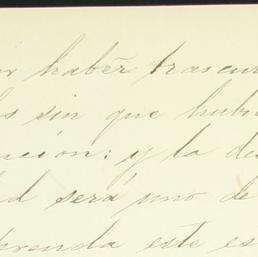 or habẽr trascur
s sin que hubi
ución: y la de
d será uno de
prenda este es